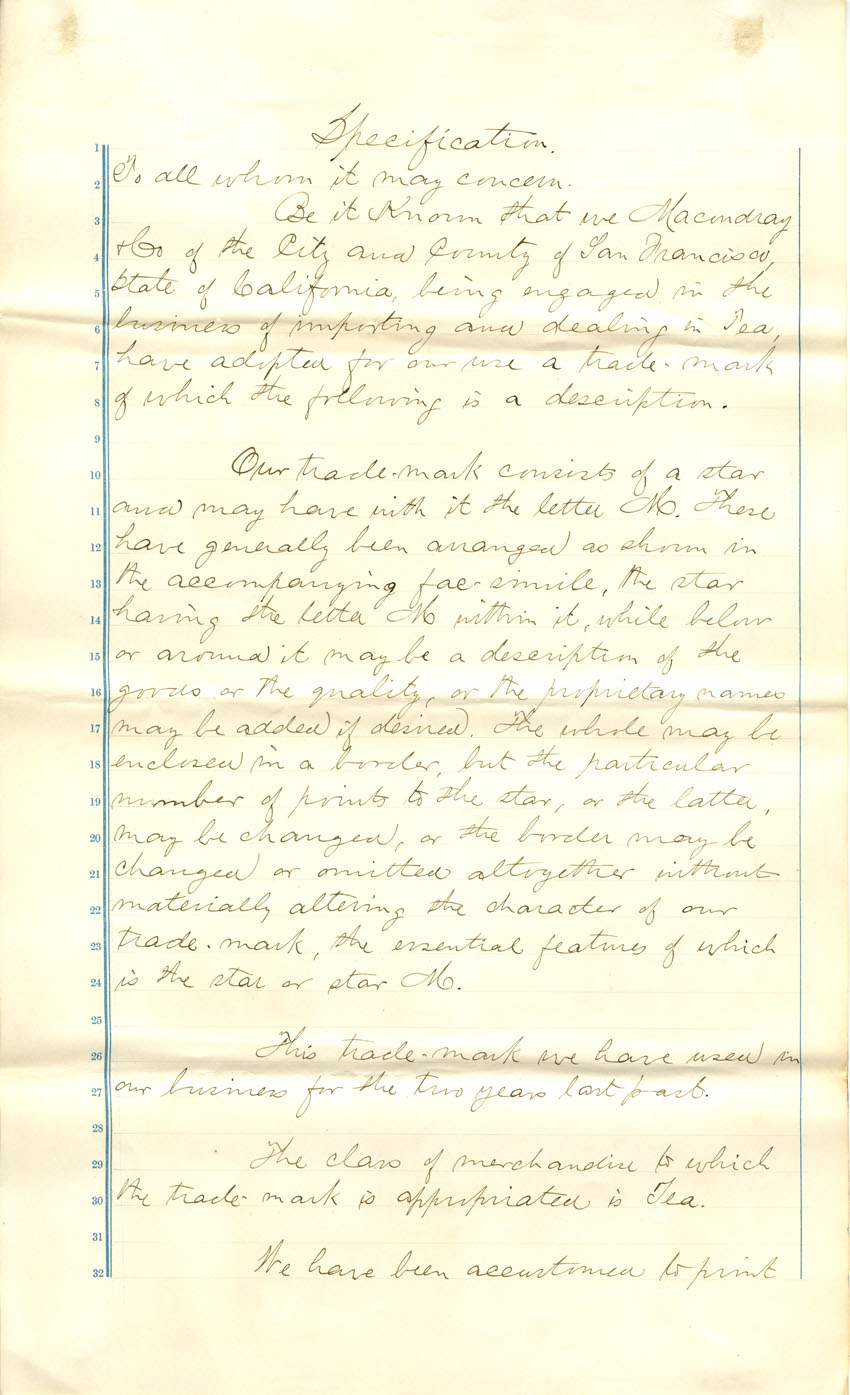 Specification.
1
2 To all whom it may concern.
3 Be it Known that we Macondray
4 & Co of the City and County of San Francisco,
5 State of California, being engaged in the
6 business of importing and dealing in Tea,
7 have adopted for our use a trade-mark
8 of which the following is a description.
9
10 Our trade-mark consists of a star
11 and may have with it the letter M. These
12 have generally been arranged as shown in
13 the accompanying fac-simile, the star
14 having the letter M within it, while below
15 or around it may be a description of the
16 goods or the quality, or the proprietary names
17 may be added if desired. The whole may be
18 enclosed in a border, but the particular
19 number of points to the star, or the latter,
20 may be changed, or the border may be
21 changed or omitted altogether without
22 materially altering the character of our
23 trade-mark, the essential features of which
24 is the star or star M.
25
26 This trade-mark we have used in
27 our business for the two years last past.
28
29 The class of merchandise to which
30 the trade-mark is appropriated is Tea.
31
32 We have been accustomed to print